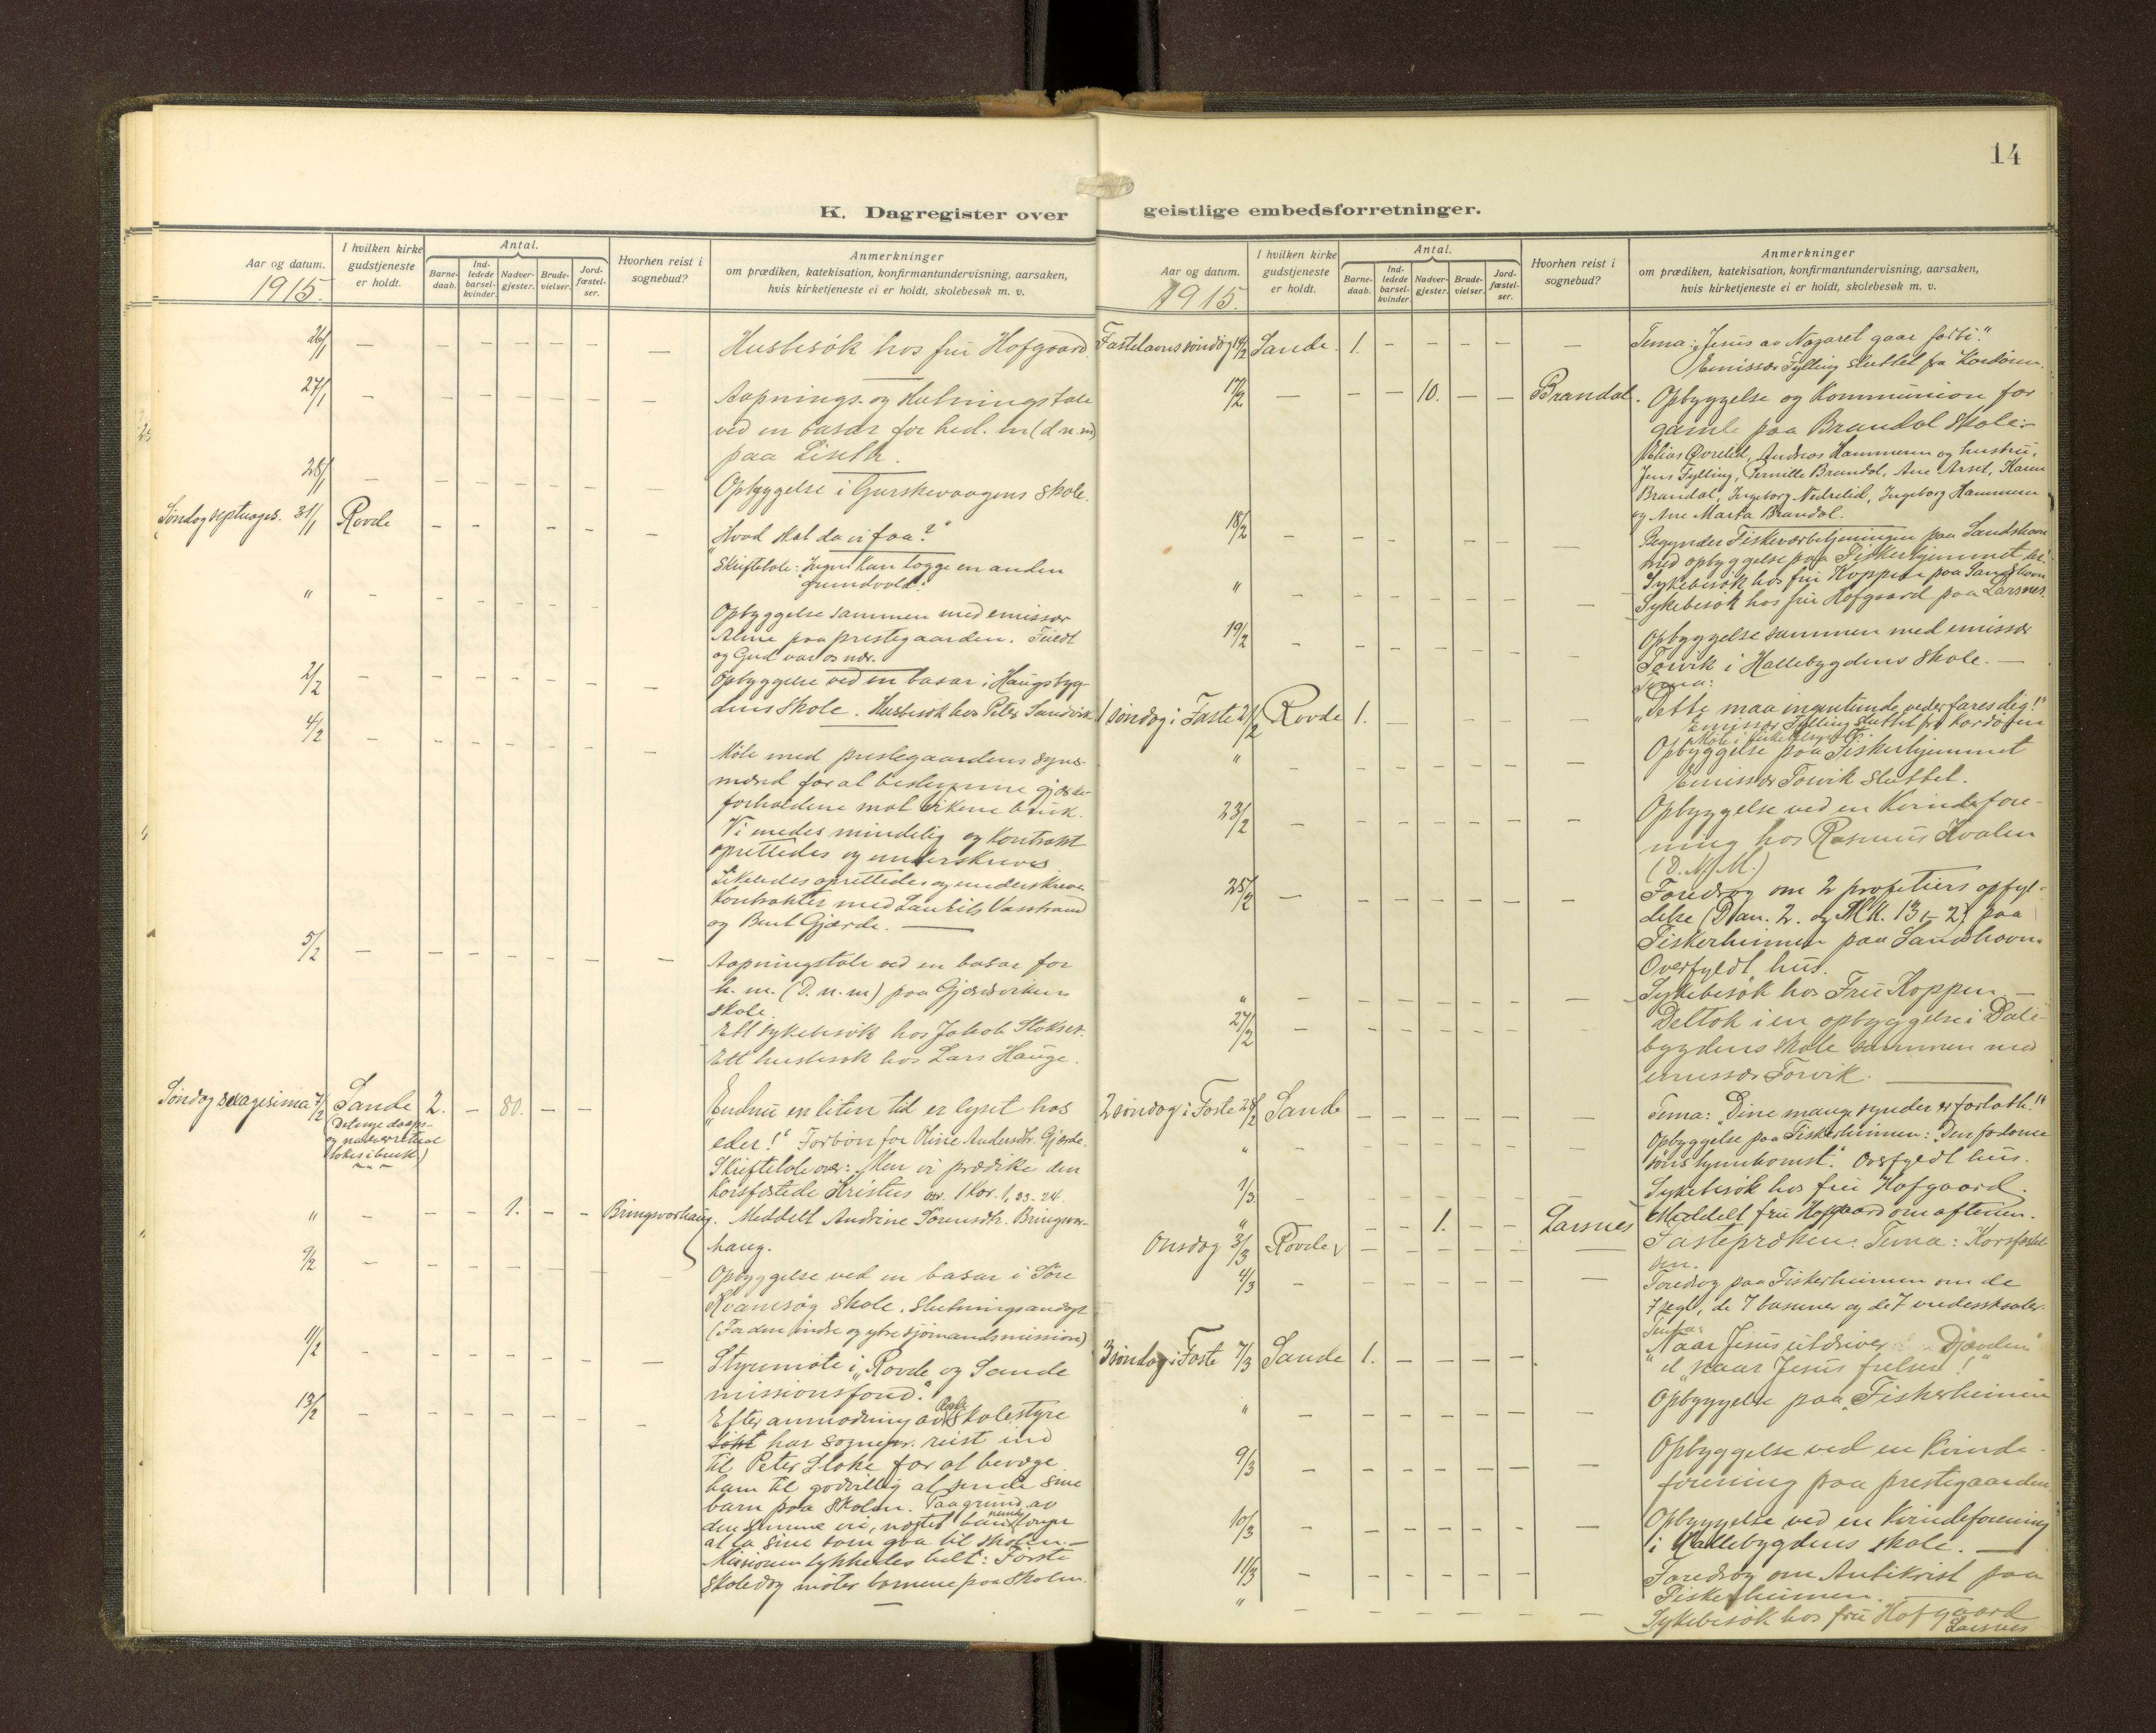 14
K. Dagregister over
Aar og datum.
1915.
I hvilken kirke gudstjeneste er holdt.
Antal.
Barnedaab.
Indledede barselkvinder.
Nadvergjester.
Brudevielser.
Jordfæstelser.
Hvorhen reist i sognebud?
Anmerkninger
om prædiken, katekisation, konfirmantundervisning, aarsaken,
hvis kirketjeneste ei er holdt, skolebesøk m. v.
26/1 — — — — — — — Husbesök hos fru Hofgaard.
27/1 — — — — — — — Aapnings- og slutningstale
ved en basar for hed. m (d n m)
paa Liseth.
28/1 — — — — — — — Opbyggelse i Gurskevaagens skole.
Søndag septuages. 31/1 Rovde — — — — — „Hvad skal da vi faa?"
Skriftetale: Ingen kan lægge en anden
grundvold.
" — — — — — — Opbyggelse sammen med emissær
Alme paa prestegaarden. Fuldt
og Gud var os nær.
2/2 — — — — — — — Opbyggelse ved en basar i Haugsbyg-
dens skole. Husbesök hos Peter Sandvik
4/2 — — — — — — — Möte med prestegaardens syns-
mænd for at bestemme gjærde-
forholdene mot
Vi enedes mindelig og kontrakt
oprettedes og underskreves
Likeledes oprettedes og underskreves
Kontrakter med Laurits Vasstrand
og Bent Gjærde. —
5/2 — — — — — — — Aapningstale ved en basar for
h. m. (D. n. m) paa Gjærdsvikens
skole.
Ett sykebesök hos Jakob Stokset.
Ett husbesök hos Lars Hauge.
Søndag sexagesima 7/2 Sande 2. — 80. — — „Endnu en liten tid er lyset hos
(Det nye daaps-
og nadverritual
tokes i bruk)
eder!" Forbön for Oline Andersdtr. Gjærde.
Skriftetale over: Men vi prædike den
korsfæstede Kristus osv. 1 Kor. 1, 23-24.
" — — 1. — — Bringsvorhaug. Meddelt Andrine Sørensdtr. Bringsvor-
haug.
9/2 — — — — — — Opbyggelse ved en basar i Søre
Kvamsøy skole. Slutningsandagt
(For den indre og ytre sjömandsmission)
11/2 — — — — — — — Styremöte i „Rovde og Sande
missionsfond."
13/2 — — — — — — — Efter anmodning av skolestyre
har sognepr. reist ind
til Peter Stoke for at bevæge
ham til godvillig at sende sine
barn paa skolen. Paa grund av
at la sine som gaa til skolen.—
Missionen lykkedes helt: Første
skoledag möter barnene paa skolen.
geistlige embedsforretninger.
Aar og datum.
1915.
I hvilken kirke gudstjeneste er holdt.
Antal.
Barnedaab.
Indledede barselkvinder.
Nadvergjester.
Brudevielser.
Jordfæstelser.
Hvorhen reist i sognebud?
Anmerkninger
om prædiken, katekisation, konfirmantundervisning, aarsaken,
hvis kirketjeneste ei er holdt, skolebesøk m. v.
Fastelavns søndag 14/2 Sande. 1. — — — — — Tema: „Jesus av Nazaret gaar forbi."
Emissær Fylling sluttet fra kordören.
17/2 — — — 10. — — Brandal. Opbyggelse og kommunion for
gamle paa Brandal skole:
Elias Øvrelid, Andreas Hammeren og hustru,
Jens Fylling, Pernille Brandal, Ane Arset, Karen
Brandal, Ingeborg Nedrelid, Ingeborg Hammeren
og Ane Marta Brandal.
18/2 — — — — — — Begynder Fiskeværbetjeningen paa Sandshavn
med opbyggelse paa Fiskerhjemmet der.
Sykebesök hos fru Koppen paa Sandshavn
" — — — — — — Sykebesök hos fru Hofgaard paa Larsnes.
19/2 — — — — — — — Opbyggelse sammen med emissær
Torvik i Hallebygdens skole. —
Tema:
1 søndag i Faste 21/2 Rovde 1. — — — — — „Dette maa ingenlunde vederfares dig!"
Emissær Fylling sluttet fra kordören
" — — — — — — — Opbyggelse paa Fiskerhjemmet
Emissær Torvik sluttet.
23/2 — — — — — — — Opbyggelse ved en Kvindefore-
ning hos Rasmus Kvalen
(D. N. M.)
25/2 — — — — — — — Foredrag om 2 profetiers opfyl-
delse (Dan. 2. og Mk. 13,-2) paa
Fiskerheimen paa Sandshavn.
Overfyldt hus.
" — — — — — — — Sykebesök hos Fru Koppen —
27/2 — — — — — — — Deltok i en opbyggelse i Dale-
bygdens skole sammen med
emissær Torvik.
2 søndag i Faste 28/2 Sande — — — — — — Tema: „Dine mange synder er forlatt!"
" — — — — — — — Opbyggelse paa Fiskerheimen: „Den fortapte
søns hjemkomst." Overfyldt hus.
1/3 — — — — — — Sykebesök hos fru Hofgaard.
" — — 1. — — Larsnes Meddelt fru Hofgaard om aftenen.
Onsdag 3/3 Rovde — — — — — — Fasteprækener. Tema: Korsfæstel-
sen.
4/3 — — — — — — — Foredrag paa Fiskerheimen om de
7 segl, de 7 basuner og de 7 vredesskaaler.
Tema:
3 søndag i Faste 7/3 Sande 1. — — — — — „Naar Jesus utdriver Djævelen"
el „naar Jesus frelser!"
" — — — — — — — Opbyggelse paa „Fiskerheimen
9/3 — — — — — — — Opbyggelse ved en kvinde-
forening paa prestegaarden
10/3 — — — — — — — Opbyggelse ved en Kvindeforening
i Hallebygdens skole. —
11/3 — — — — — — — Foredrag om Antikrist paa
Fiskerheimen.
" — — — — — — — Sykebesök hos fru Hofgaard
Larsnes